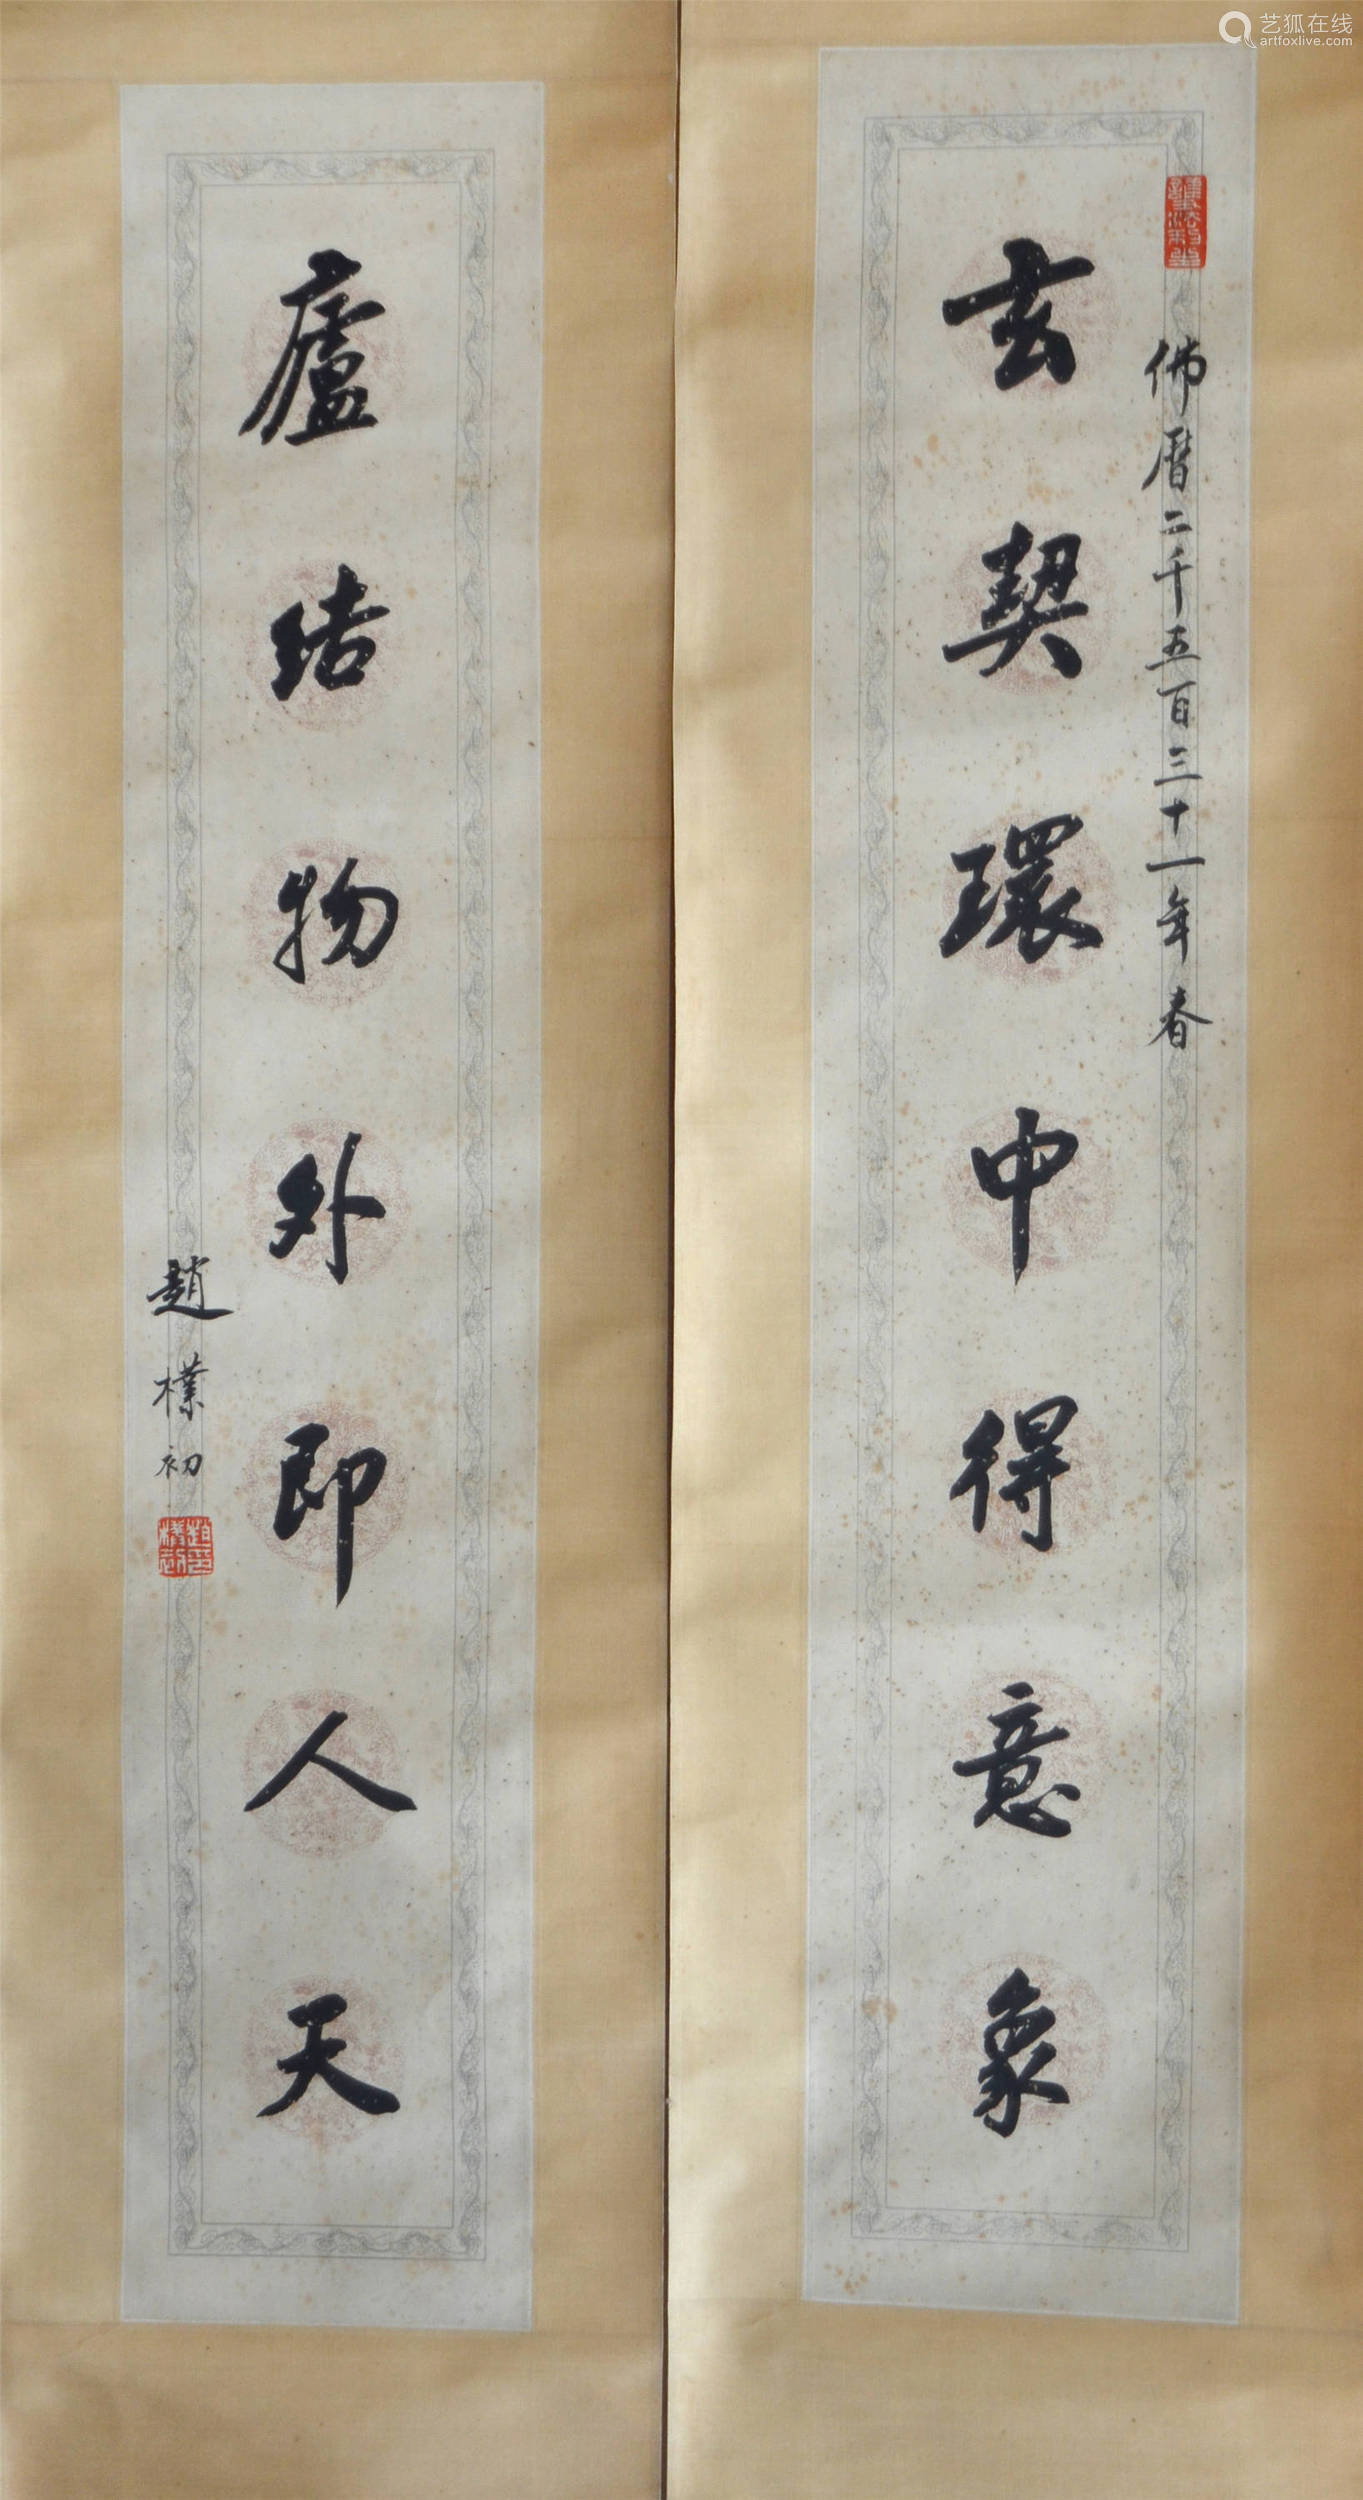 艺狐在线
artfoxlive.com
佛曆二千五百三十一年春
玄契環中得意象
廬結物外即人天
趙樸初